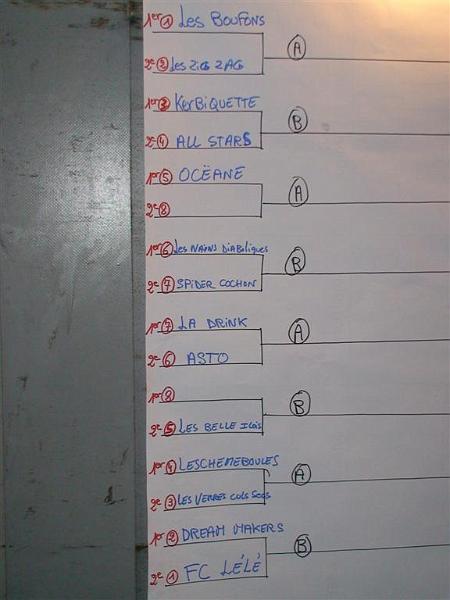 1er ① LES BOUFONS
A
2e ② LES ZIG ZAG
1er ③ KERBIQUETTE
B
2e ④ ALL STARS
1er ⑤ OCËANE
A
2e ⑧
1er ⑥ LES NAINS DIABOLIQUES
B
2e ⑦ SPIDER COCHON
1er ⑦ LA DRINK
A
2e ⑥ ASTO
1er ⑧
B
2e ⑤ LES BELLE ILOIS
1er ④ LESCHEMEBOULES
A
2e ③ LES VERRES CULS SECS
1er ② DREAM MAKERS
B
2e ① FC LÉLÉ